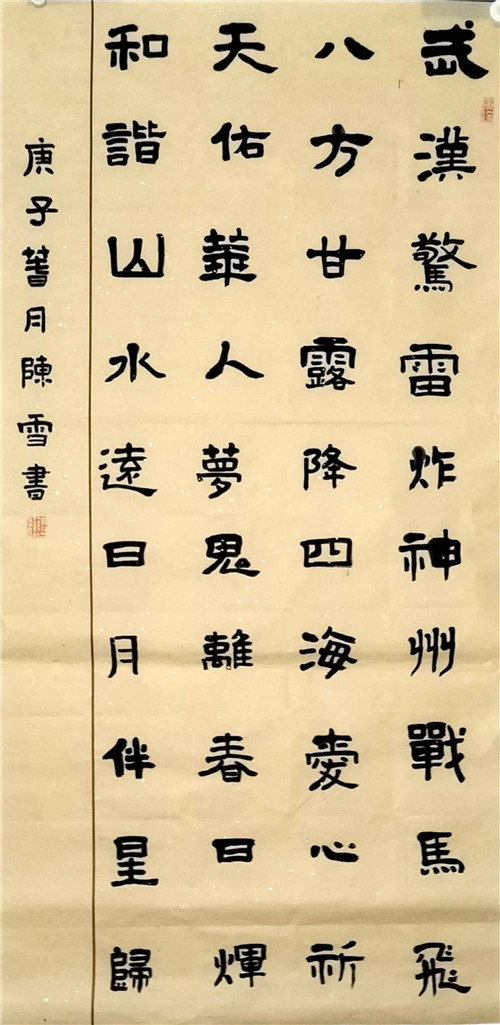 武漢驚雷炸神州戰馬飛
八方甘露降四海愛心祈
天佑華人夢鬼離春日輝
和諧山水遠日月伴星歸
庚子蒼月陳雪書